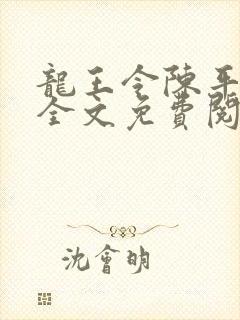 龍王令陳平
全文免費閱
沈會明